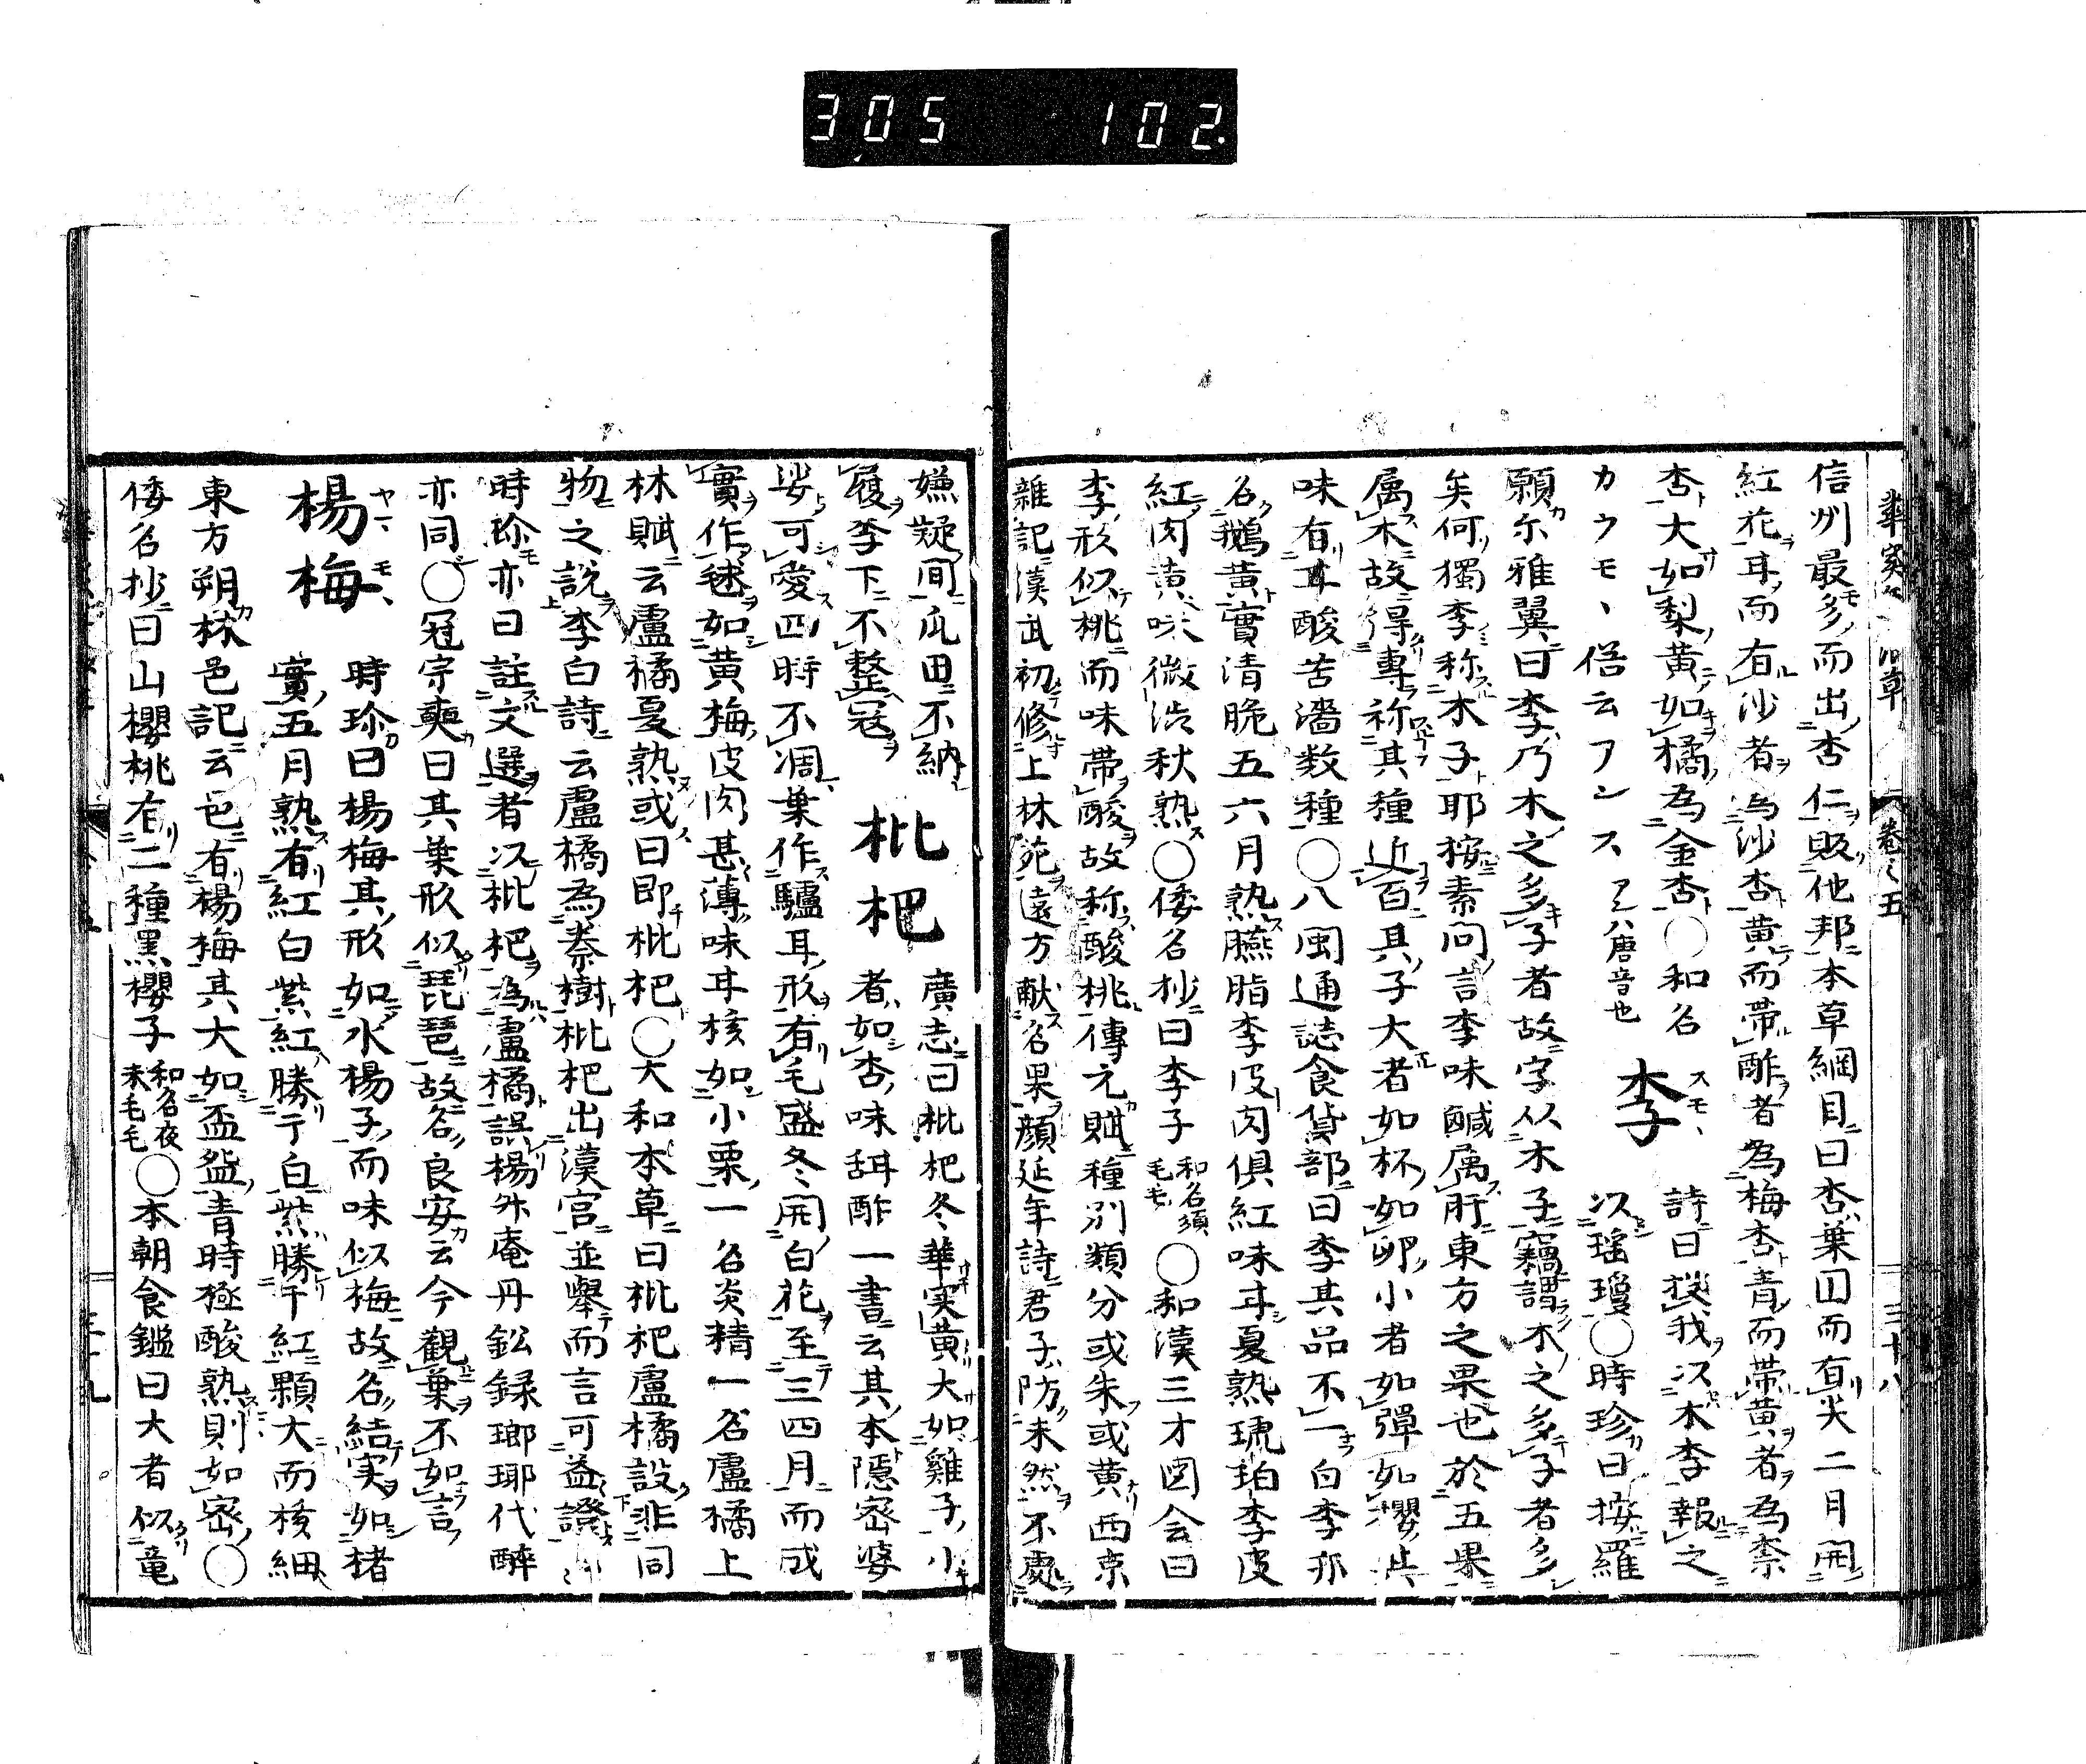 305 102.
卷之五
信州最多而出杏仁販他邦本草綱目曰杏葉囙而有尖二月開
紅花耳而有沙者為沙杏黄而帯酢者為梅杏青而帯黄者為柰
杏大如梨黄如橘為金杏○和名
カウモヽ 俗云アンス アンハ唐音也
李 スモヽ
詩曰投我以木李報之
以瑶瓊○時珍曰按羅
願尓雅翼曰李乃木之多子者故字从木子竊謂木之多子者多
矣何獨李称木子耶按素問言李味鹹属肝東方之果也於五果
属木故得專称其種近百其子大者如杯如卵小者如彈如櫻其
味有甘酸苦濇数種○八閩通誌食貨部曰李其品不一白李邪
名鵝黄實清脆五六月熟臙脂李皮肉俱紅味甘夏熟琥珀李皮
紅肉黄味微渋秋熟○倭名抄曰李子 和名須毛毛 ○和漢三才図会曰
李形似桃而味帯酸故称酸桃傳元賦種別類分或朱或黄西京
雜記漢武初修上林苑遠方献名果顔延年詩君子防未然不處
嫌疑間瓜田不納
履李下不整冠
枇杷
廣志曰枇杷冬華実黄大如雞子小
者如杏味甜酢一書云其本隠密婆
娑可愛四時不凋葉作驢耳形有毛盛冬開白花至三四月而成
實作毬如黄梅皮肉甚薄味甘核如小栗一名炎精一名盧橘上
林賦云盧橘夏熟或曰即枇杷○大和本草曰枇杷盧橘設非同
物之説李白詩云盧橘為秦樹枇杷出漢宮並舉而言可益證
時珍亦曰註文選者以枇杷為盧橘誤楊升庵丹鈆録瑯琊代醉
亦同○冠宗奭曰其葉形似琵琶故名良安云今觀葉不如言
楊梅 ヤマモヽ
時珍曰楊梅其形如水楊子而味似梅故名結実如楮
實五月熟有紅白紫紅勝于白紫勝于紅顆大而核細
東方朔林邑記云邑有楊梅其大如盃盌青時極酸熟則如密○
倭名抄曰山櫻桃有二種黒櫻子 和名夜末毛毛 ○本朝食鑑曰大者似竜